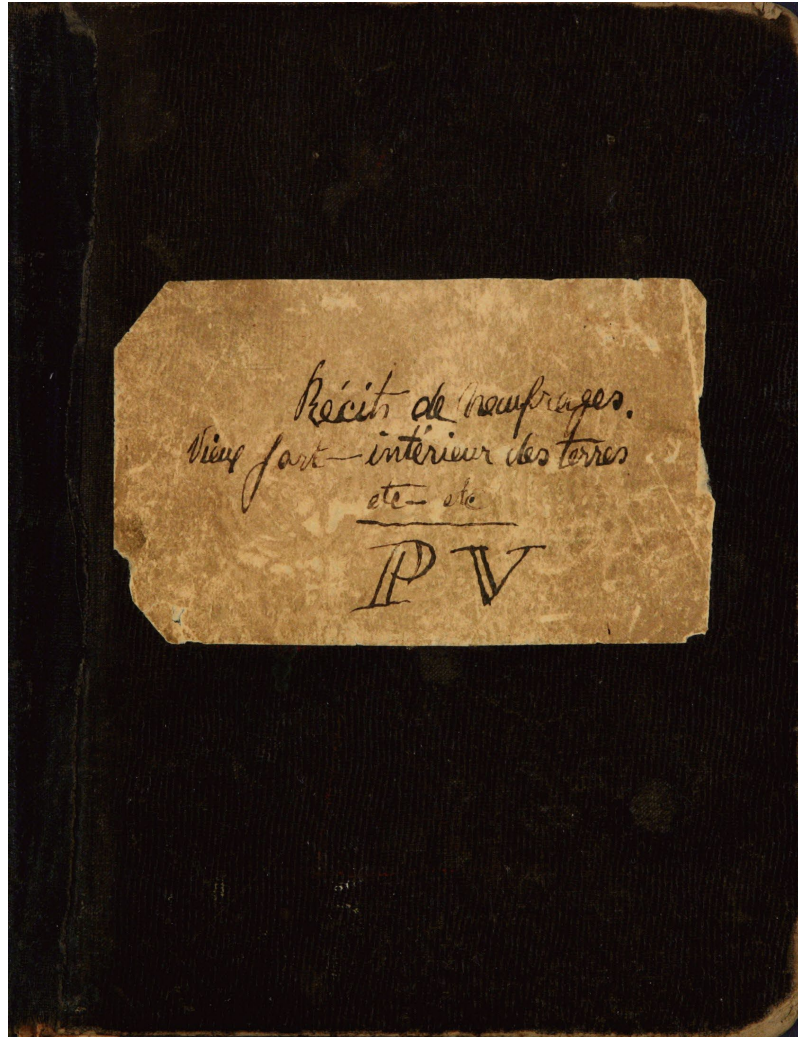 Récits de Naufrages.
Vieux fort — intérieur des terres
etc — etc
PV